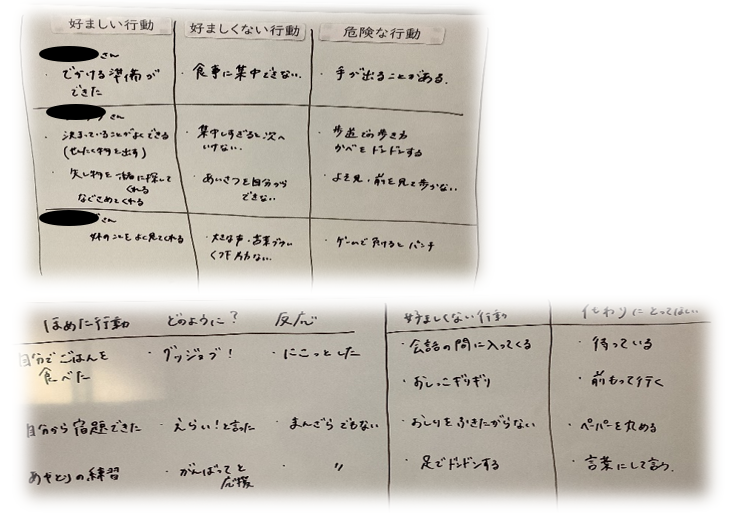 好ましい行動
好ましくない行動
危険な行動
さん
・でかける準備が
できた
・食事に集中できない.
・手が出ることがある.
さん
・決まっていることがよくできる
(せんたく物を出す)
・集中しすぎると次へ
いけない.
・歩道での歩き方
かべをドンドンする
・失し物を一緒に探して
くれる
なぐさめてくれる
・あいさつを自分から
できない
・よそ見・前を見て歩かない.
さん
外のことをよく見てくれる
・大きな声・言葉づかい
くつ下 ない.
・ゲームで負けるとパンチ
ほめた行動
どのように?
反応
好ましくない行動
代わりにとってほしい
自分でごはんを
食べた
・グッジョブ!
・にこっとした
・会話の間に入ってくる
・待っている
・おしっこギリギリ
・前もって行く
自分から宿題できた
・えらい!と言った
・まんざらでもない
・おしりをふきたがらない
・ペーパーを丸める
あやとりの練習
・がんばってと
応援
・〃
・足でドンドンする
・言葉にして言う.